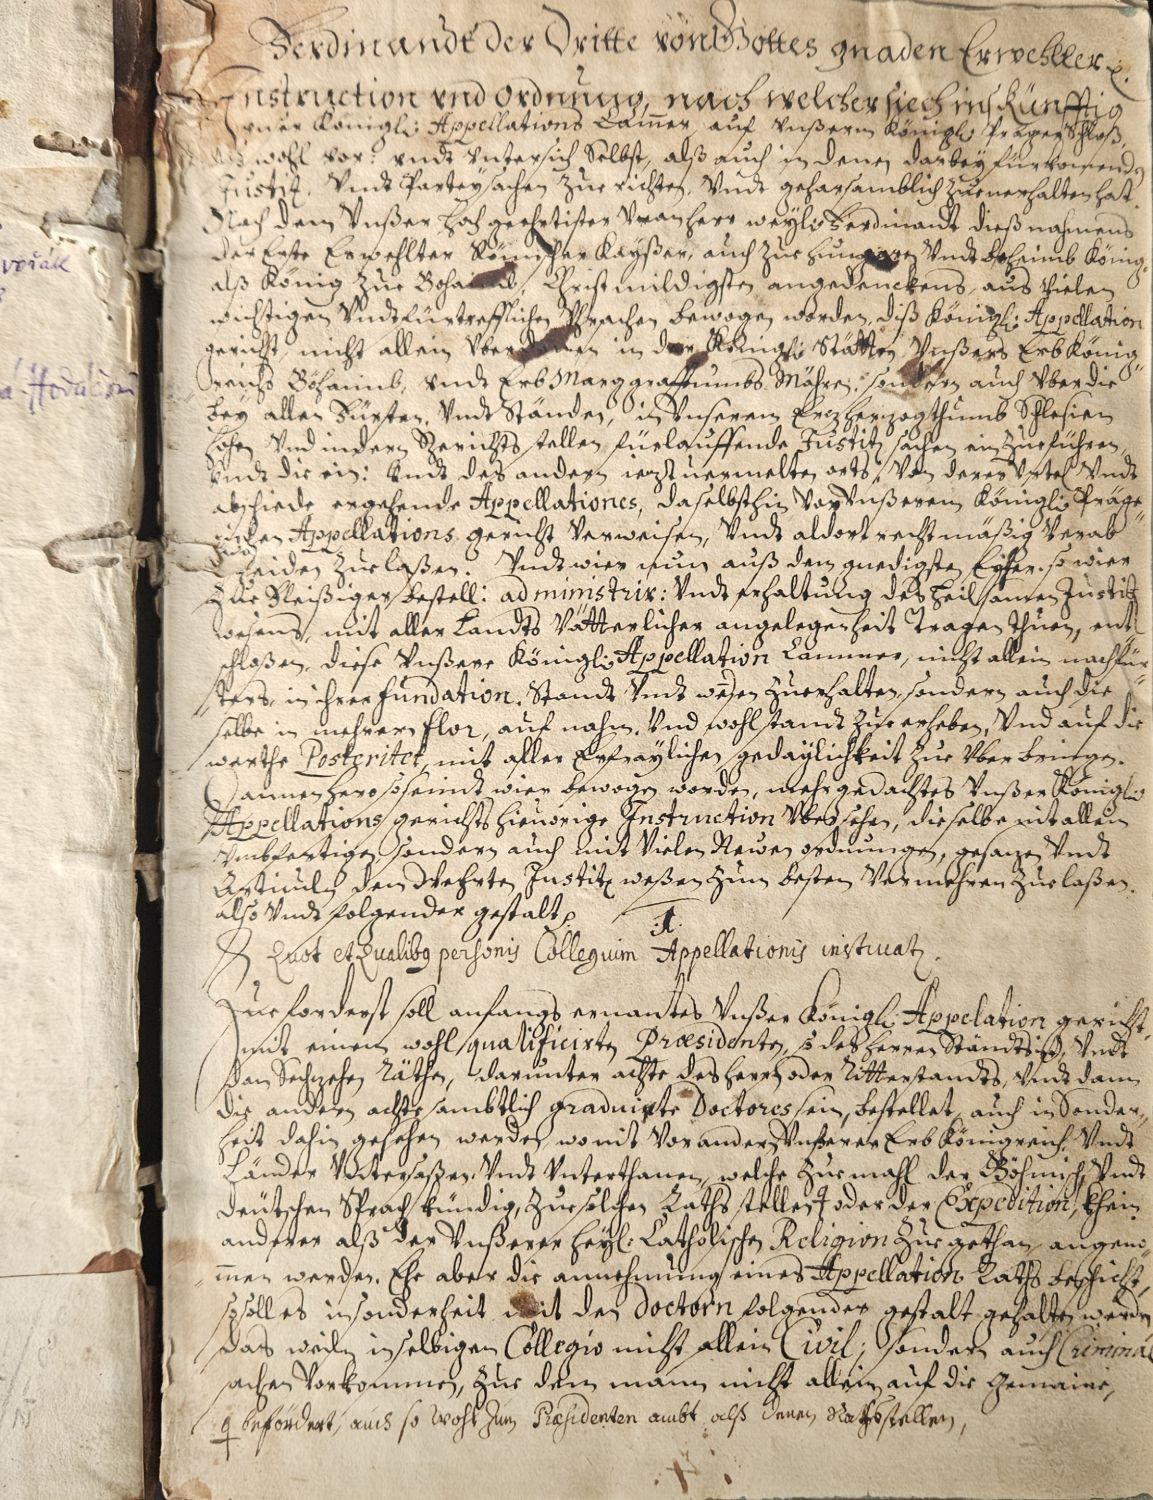 Ferdinandt der Dritte von Gottes gnaden Erwehlter
Instruction vnd Ordnung, nach welcher siech ins Künfftig
vnser Königl: Appellations Cammer, auf vnßerm Königl: Prager Schloß,
so wohl vor: vndt vnter sich Selbst, alß auch in denen darbey fürkommenden
Justitz. Vndt Partey sachen zue richten, Vndt gehorsamblich zue verhalten hat.
Nach dem Vnßer hoch geehrtister Vranherr weyl: Ferdinandt dieß nahmens
der Erste Erwehlter Römischer Kayßer, auch zue Hungarn Vndt Beheimb König
alß König zue Bohaimb, Christmildigsten angedenckens, aus vielen
wichtigen Vndt fürtrefflichen Vrsachen bewogen worden, diß Königl: Appellation
gericht, nicht allein vber in der Königl: Stätten Vnßers Erb König
reichs Böhaimb, vndt Erb Marggraffthumbs Mähren, sondern auch vber die
bey allen Fürsten, Vndt Ständen, in Vnserem Erzherzogthumb Schlesien
hohen Vnd indern Gerichts stellen fürlauffende Justitz sachen ein zue führen,
Vndt die ein: Vndt des andern orts, von derer Vrtel Vndt
abschiede ergehende Appellationes, daselbsthin vor Vnßerem Königl: Präge
rischen Appellations gericht verweisen, Vndt aldort rechtmäßig verab
scheiden zue laßen. Vndt wier nun auß dem gnedigsten Eyfer, so wier
zue Fleißiger bestell: administrir: Vndt erhaltung des heilsamen Justitz
wesens, mit aller Landts Vätterlicher angelegenheit Tragen thuen, ent
schloßen, diese Vnßere Königl: Appellation Cammer, nicht allein nachfür
sters, in ihrer fundation, Standt Vndt weßen zuerhalten, sondern auch die
selbe in mehrern flor, auf nahm, Vnd wohlstandt zue erheben, Vnd auf die
werthe Posteritet, mit aller Ersprayßlichen gedaylichkeit zue vber bringen.
Dannenhero so seindt wier bewogen worden, mehrgedachtes Vnßer Königl:
Appellations gerichts hieuorige Instruction vbersehen, dieselbe nit allein
vmbfertigen, sondern auch mit vielen Newen ordnungen, gesazen Vndt
Articuln dem Werthen Justitz weßen zum besten Vermehren zue laßen.
also Vndt folgender gestalt
.1.
Quot et Qualibg personis Collegium Appellationis instruatr.
Zue forderst soll anfangs ernantes Vnßer Königl: Appelation gericht,
mit einem wohl qualificirten Præsidenten, so des Herren Standts ist, Vndt
dan Sechzehen Räthen, darunter achte des Herrn oder Ritterstandts, Vndt dann
die anderen achte sambtlich graduirte Doctores sein, bestellet, auch in Sonder
heit dahin gesehen werden, womit vor andern Vnßerer Erb Königreich, Vndt
Länder Vntersaßen, Vndt Vnterthanen, welche zue mahl der Böhmisch, Vndt
deütschen Sprach kündig, zue solchen Raths stellen ‡ oder der Expedition, khein
anderer alß der Vnßerer heyl: Catholischen Religion zue gethan, angenom
men werden. Ehe aber die annehmung eines Appellation Raths beschicht,
so soll es insonderheit mit den Doctorn folgender gestalt gehalten werden
das weiln in selbigen Collegio nicht allein Civil, sondern auch Criminal
sachen vorkommen, zue dem mann nicht allein auf die Gemaine,
‡ befördert, auch so wohl zum Præsidenten ambt, alß denen Rathsstellen,